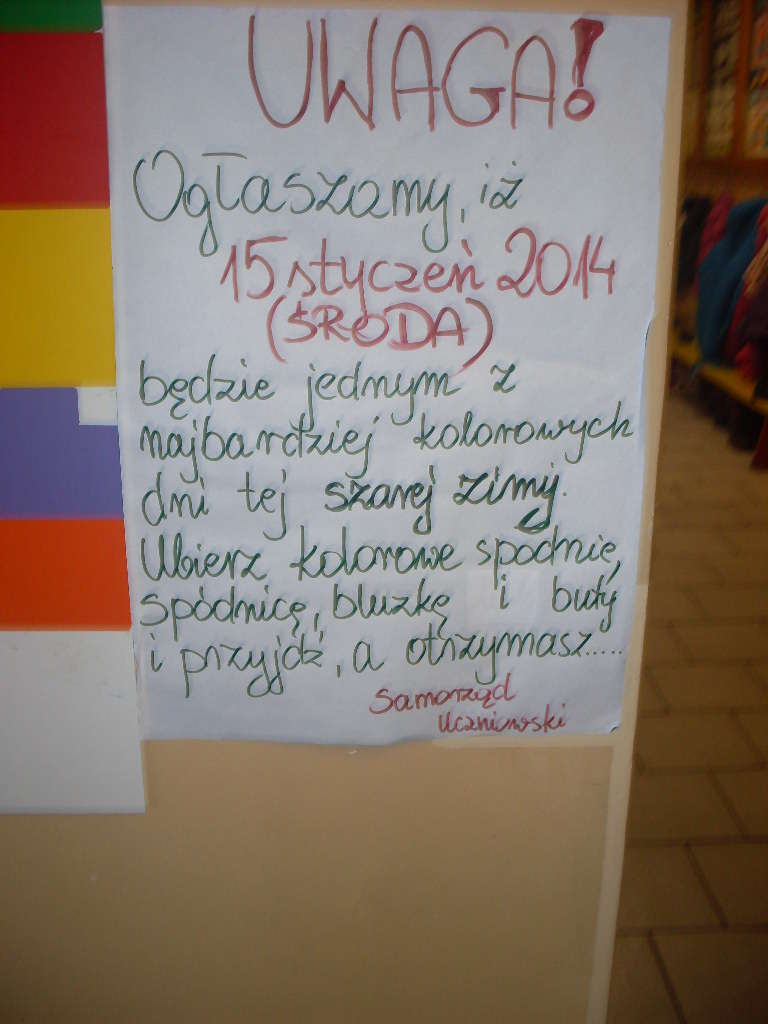 UWAGA!
Ogłaszamy, iż
15 styczeń 2014
(ŚRODA)
będzie jednym z
najbardziej kolorowych
dni tej szarej zimy.
Ubierz kolorowe spodnie,
spódnicę, bluzkę i buty
i przyjdź, a otrzymasz.....
Samorząd
Uczniowski